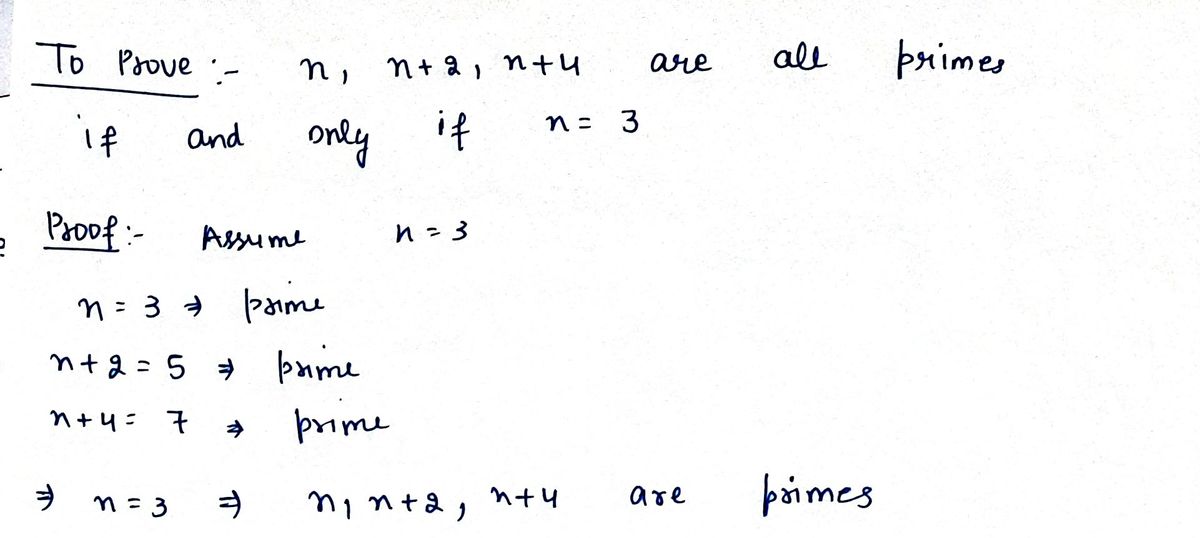 To Prove :- n, n+2, n+4 are all primes
if and only if n = 3
Proof :- Assume n = 3
n = 3 ⇒ prime
n+2 = 5 ⇒ prime
n+4 = 7 ⇒ prime
⇒ n = 3 ⇒ n, n+2, n+4 are primes